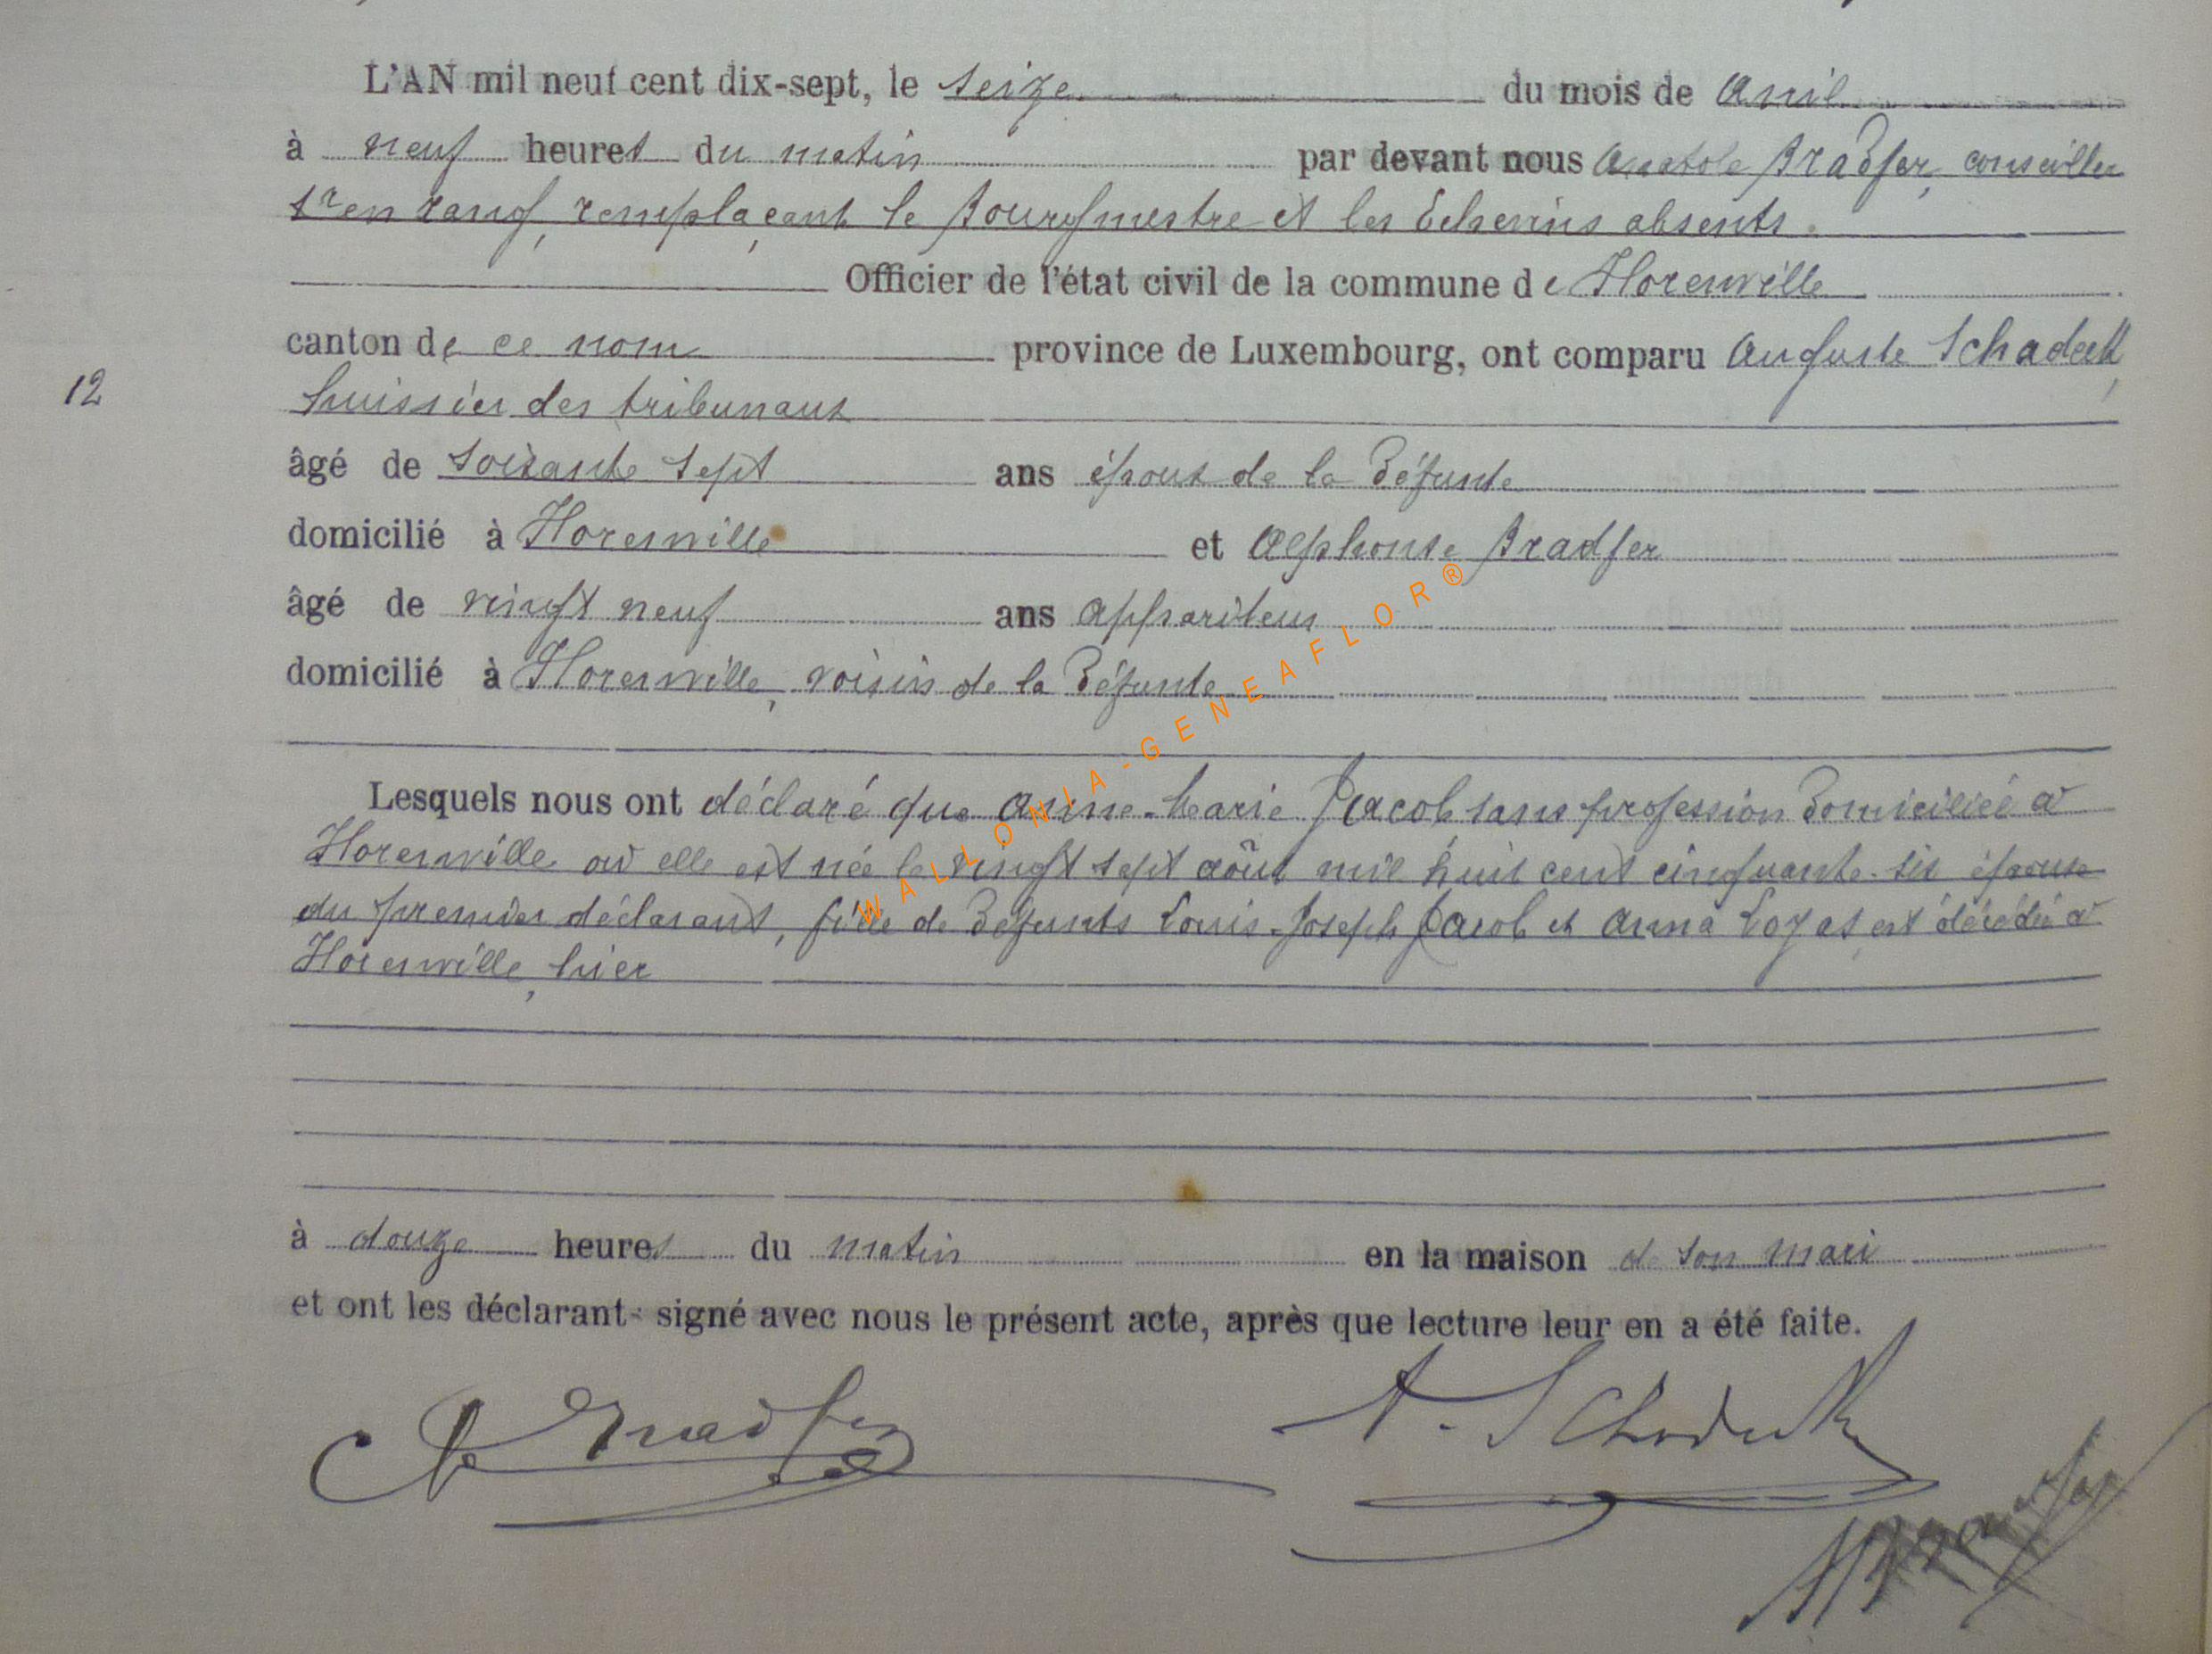 L'AN mil neuf cent dix-sept, le seize du mois de Avril
à neuf heures du matin par devant nous Anatole Bradfer, conseiller
1er en rang, remplaçant le Bourgmestre et les Echevins absents.
Officier de l'état civil de la commune de Florenville
canton de ce nom province de Luxembourg, ont comparu Auguste Schadeck,
12
huissier des tribunaux
âgé de soixante sept ans époux de la défunte
domicilié à Florenville et Alphonse Bradfer
âgé de vingt neuf ans appariteur
domicilié à Florenville, voisin de la défunte
Lesquels nous ont déclaré que Anne-Marie Jacob sans profession domiciliée à
Florenville où elle est née le vingt sept août mil huit cent cinquante-six épouse
du premier déclarant, fille de défunts Louis-Joseph Jacob et Anna est décédée à
Florenville, hier
à douze heures du matin en la maison de son mari
et ont les déclarant signé avec nous le présent acte, après que lecture leur en a été faite.
Bradfer A. Schadeck
WALLONIA-GENEAFLOR®